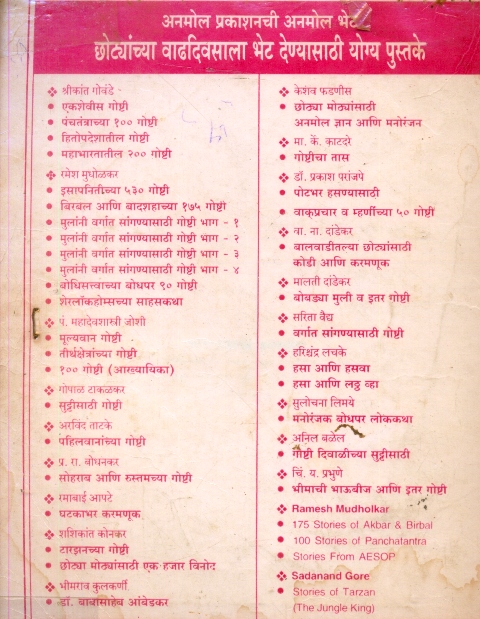 अनमोल प्रकाशनची अनमोल भेट
छोट्यांच्या वाढदिवसाला भेट देण्यासाठी योग्य पुस्तके
❖ श्रीकांत गोवंडे
• एकशेवीस गोष्टी
• पंचतंत्राच्या १०० गोष्टी
• हितोपदेशातील गोष्टी
• महाभारतातील २०० गोष्टी
❖ रमेश मुधोळकर
• इसापनितीच्या ५३० गोष्टी
• बिरबल आणि बादशहाच्या १७५ गोष्टी
• मुलांनी वर्गात सांगण्यासाठी गोष्टी भाग - १
• मुलांनी वर्गात सांगण्यासाठी गोष्टी भाग - २
• मुलांनी वर्गात सांगण्यासाठी गोष्टी भाग - ३
• मुलांनी वर्गात सांगण्यासाठी गोष्टी भाग - ४
• बोधिसत्त्वाच्या बोधपर ९० गोष्टी
• शेरलॉकहोम्सच्या साहसकथा
❖ पं. महादेवशास्त्री जोशी
• मूल्यवान गोष्टी
• तीर्थक्षेत्रांच्या गोष्टी
• १०० गोष्टी (आख्यायिका)
❖ गोपाळ टाकळकर
• सुट्टीसाठी गोष्टी
❖ अरविंद ताटके
• पहिलवानांच्या गोष्टी
❖ प्र. रा. बोधनकर
• सोहराब आणि रुस्तमच्या गोष्टी
❖ रमाबाई आपटे
• घटकाभर करमणूक
❖ शशिकांत कोनकर
• टारझनच्या गोष्टी
• छोट्या मोठ्यांसाठी एक हजार विनोद
❖ भीमराव कुलकर्णी
• डॉ. बाबासाहेब आंबेडकर
❖ केशव फडणीस
• छोट्या मोठ्यांसाठी
अनमोल ज्ञान आणि मनोरंजन
❖ मा. कें. काटदरे
• गोष्टींचा तास
❖ डॉ. प्रकाश परांजपे
• पोटभर हसण्यासाठी
• वाक्‌प्रचार व म्हणींच्या ५० गोष्टी
❖ वा. ना. दांडेकर
• बालवाडीतल्या छोट्यांसाठी
कोडी आणि करमणूक
❖ मालती दांडेकर
• बोबड्या मुली व इतर गोष्टी
❖ सरिता वैद्य
• वर्गात सांगण्यासाठी गोष्टी
❖ हरिश्चंद्र लचके
• हसा आणि हसवा
• हसा आणि लठ्ठ व्हा
❖ सुलोचना लिमये
• मनोरंजक बोधपर लोककथा
❖ अनिल बळेल
• गोष्टी दिवाळीच्या सुट्टीसाठी
❖ चिं. य. प्रभुणे
• भीमाची भाऊबीज आणि इतर गोष्टी
❖ Ramesh Mudholkar
• 175 Stories of Akbar & Birbal
• 100 Stories of Panchatantra
• Stories From AESOP
❖ Sadanand Gore
• Stories of Tarzan
(The Jungle King)